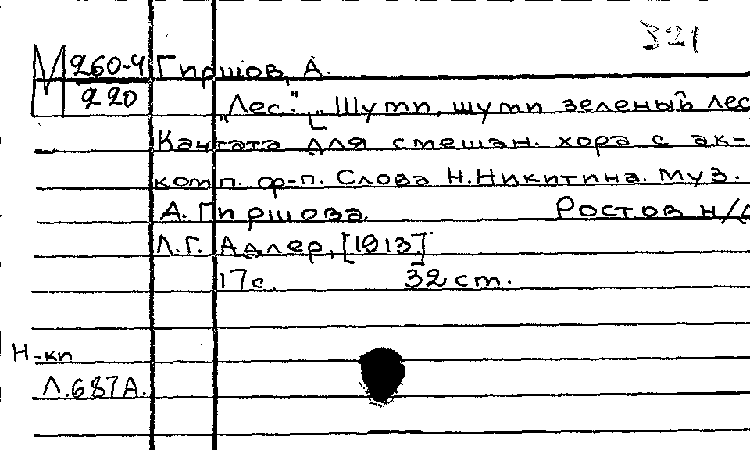 321
М 260-4 Гиршов, А.
220
„Лес." „Шуми, шуми зеленый лес
Кантата для смешан. хора с ак-
комп. ф-п. Слова Н.Никитина. Муз.
А. Гиршова. Ростов н/Д
Л.Г. Адлер, [1913]
17с. 32 ст.
Н-кп
Л.687А.